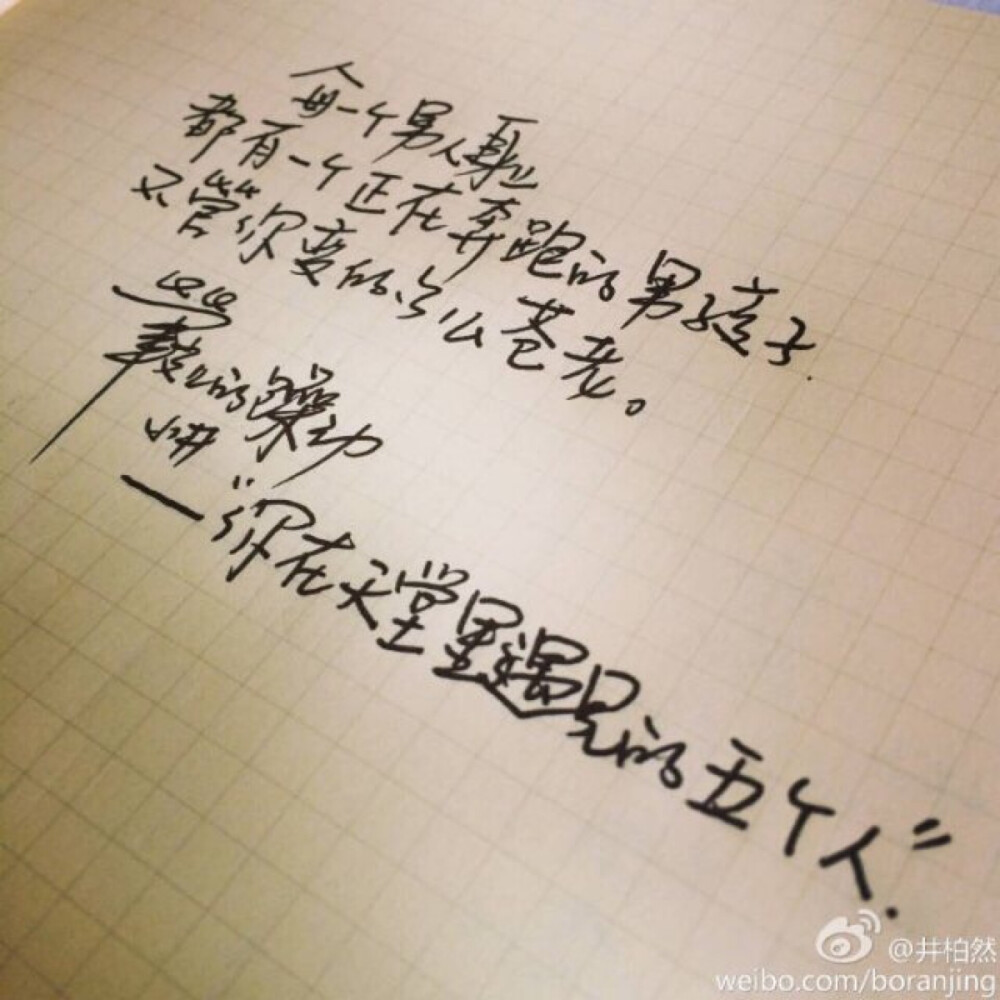 每一个男人身上
都有一个正在奔跑的男孩子.
不管你变的多么苍老。
的躁动
—"你在天堂里遇见的五个人".
@井柏然
weibo.com/boranjing